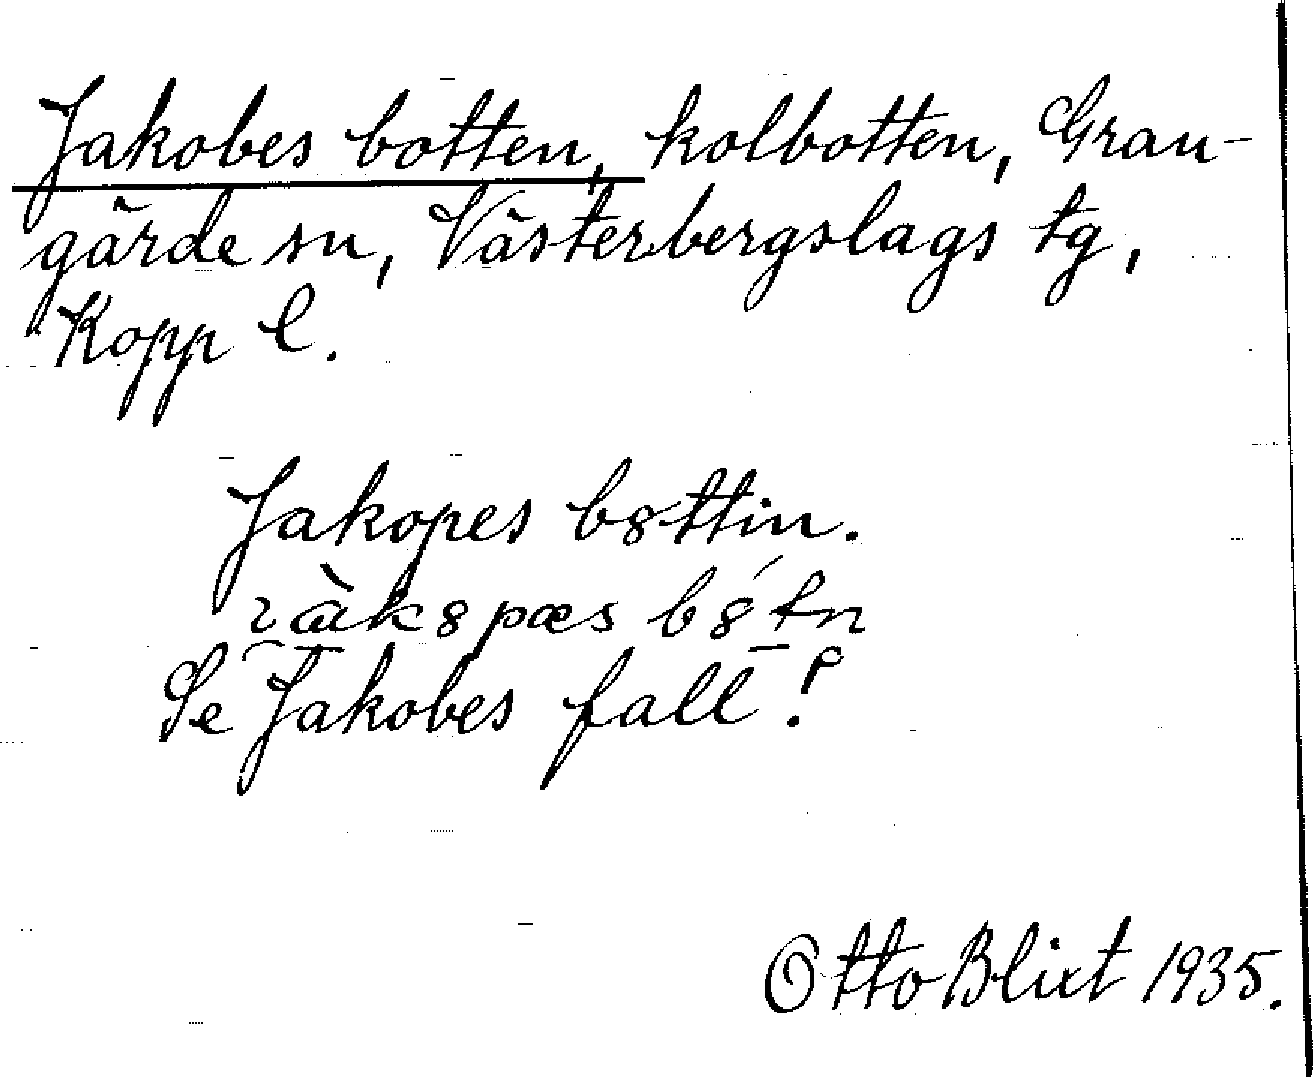 Jakobes botten, kolbotten, Gran-
gärde sn, Västerbergslags tg,
Kopp l.
Jakopes b8ttin.
Se Jakobes fall!
Otto Blixt 1935.